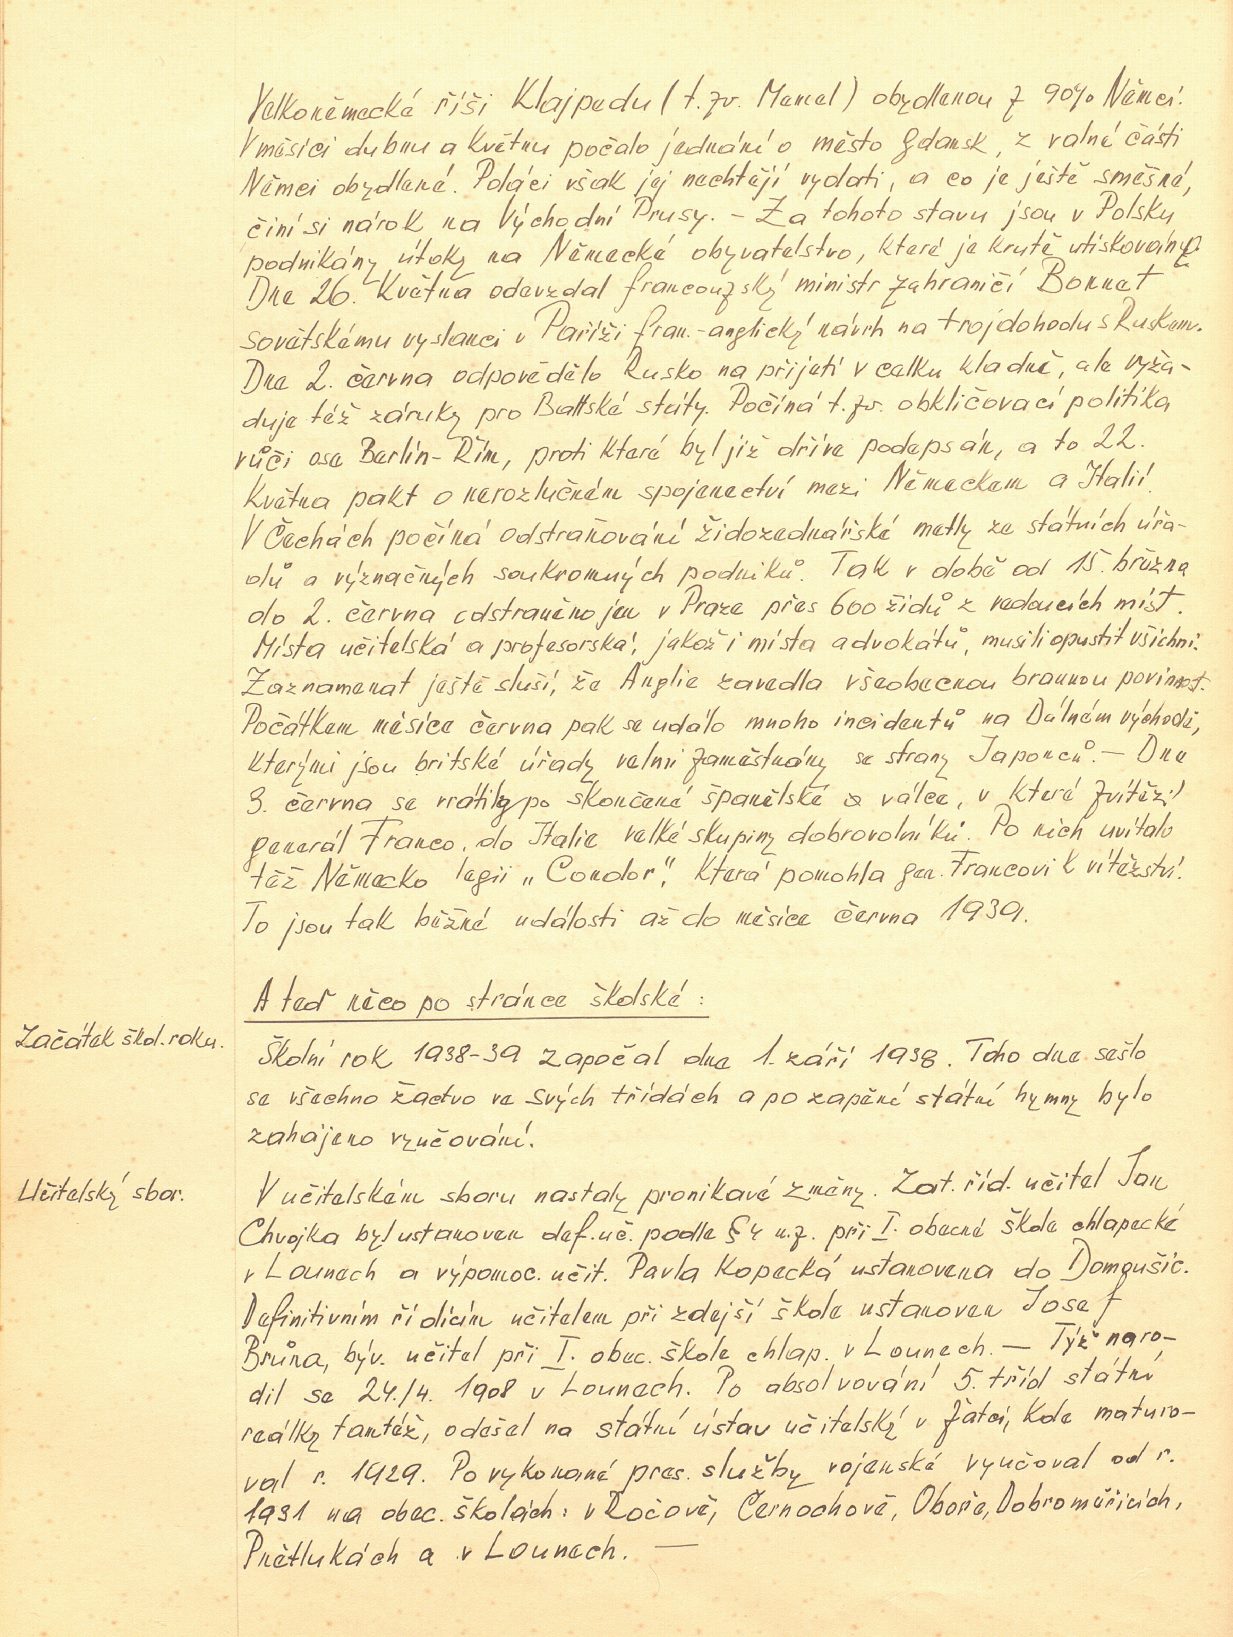 Velkoněmecké říši Klajpedu (t. zv. Memel) obydlenou z 90% Němci.
V měsíci dubnu a květnu počalo jednání o město Gdansk, z valné části
Němci obydlené. Poláci však jej nechtějí vydati, a co je ještě směšné,
činí si nárok na Východní Prusy. – Za tohoto stavu jsou v Polsku
podnikány útoky na Německé obyvatelstvo, které je krutě utiskováno.
Dne 26. Května odevzdal francouzský ministr zahraničí Bonnet
sovětskému vyslanci v Paříži fran.-anglický návrh na trojdohodu s Ruskem.
Dne 2. června odpovědělo Rusko na přijetí v celku kladně, ale vyža-
duje též záruky pro Baltské státy. Počíná t. zv. obkličovací politika
vůči ose Berlín–Řím, proti které byl již dříve podepsán, a to 22.
Května pakt o nerozlučném spojenectví mezi Německem a Italií.
V Čechách počíná odstraňování židozednářské metly ze státních úřa-
dů a význačných soukromných podniků. Tak v době od 15. března
do 2. června odstraněno jen v Praze přes 600 židů z vedoucích míst.
Místa učitelská a profesorská, jakož i místa advokátů, musili opustit všichni.
Zaznamenat ještě sluší, že Anglie zavedla všeobecnou brannou povinnost.
Počátkem měsíce června pak se událo mnoho incidentů na Dálném východě,
kterými jsou britské úřady velmi zaměstnány se strany Japonců. – Dne
9. června se vrátily po skončené španělské válce, v které zvítězil
generál Franco, do Italie velké skupiny dobrovolníků. Po nich uvítalo
též Německo legii „Condor", která pomohla gen. Francovi k vítězství.
To jsou tak běžné události až do měsíce června 1939.
A teď něco po stránce školské :
Začátek škol. roku.
Školní rok 1938-39 započal dne 1. září 1938. Toho dne sešlo
se všechno žactvo ve svých třídách a po zapění státní hymny bylo
zahájeno vyučování.
Učitelský sbor.
V učitelském sboru nastaly pronikavé změny. Zat. říd. učitel Jan
Chvojka byl ustanoven def. uč. podle § 4 n. z. při I. obecné škole chlapecké
v Lounech a výpomoc. učit. Pavla Kopecká ustanovena do Domoušic.
Definitivním řídícím učitelem při zdejší škole ustanoven Josef
Brůna, býv. učitel při I. obec. škole chlap. v Lounech. – Týž naro-
dil se 24./4. 1908 v Lounech. Po absolvování 5. tříd státní
reálky tamtéž, odešel na státní ústav učitelský v Žatci, kde maturo-
val r. 1929. Po vykonané pres. služby vojenské vyučoval od r.
1931 na obec. školách: v Ročově, Černochově, Oboře, Dobroměřicích,
Pnětlukách a v Lounech. –